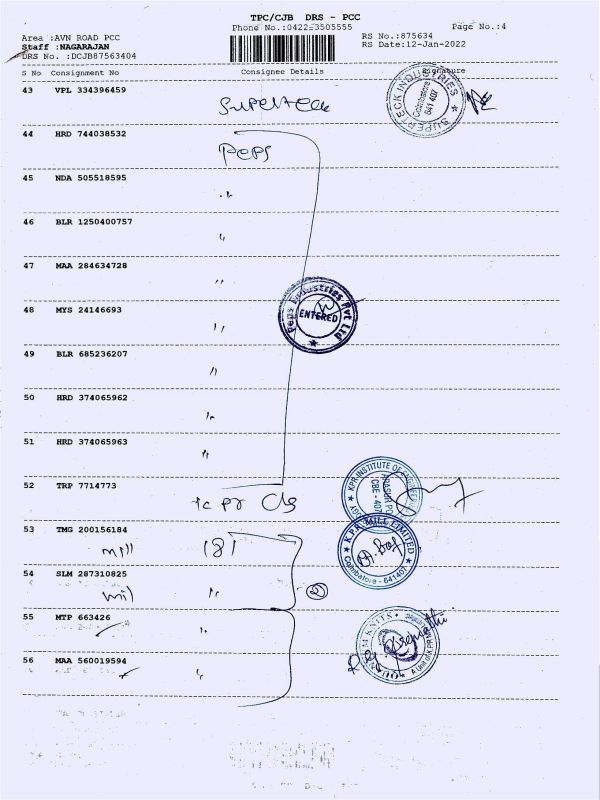 TPC/CJB DRS - PCC
Phone No.:0422-3505555
Page No.:4
Area :AVN ROAD PCC
RS No.:875634
Staff :NAGARAJAN
RS Date:12-Jan-2022
DRS No. :DCJB87563404
S No Consignment No Consignee Details Signature
43 VPL 334396459
Superteck
SUPERTECK INDUSTRIES
Coimbatore
641 407
44 HRD 744038532
Peps
45 NDA 505518595
"
46 BLR 1250400757
"
47 MAA 284634728
"
48 MYS 24146693
"
Peps Industries Pvt Ltd
ENTERED
49 BLR 685236207
"
50 HRD 374065962
"
51 HRD 374065963
"
52 TRP 7714773
KPR INSTITUTE OF ENGINEERING
ARASUR PO
CBE - 407
53 TMG 200156184
mill
K.P.R. MILL LIMITED
Coimbatore - 641407
54 SLM 287310825
mill "
55 MTP 663426
"
56 MAA 560019594
"
KNITS
A Unit of KPR Mill